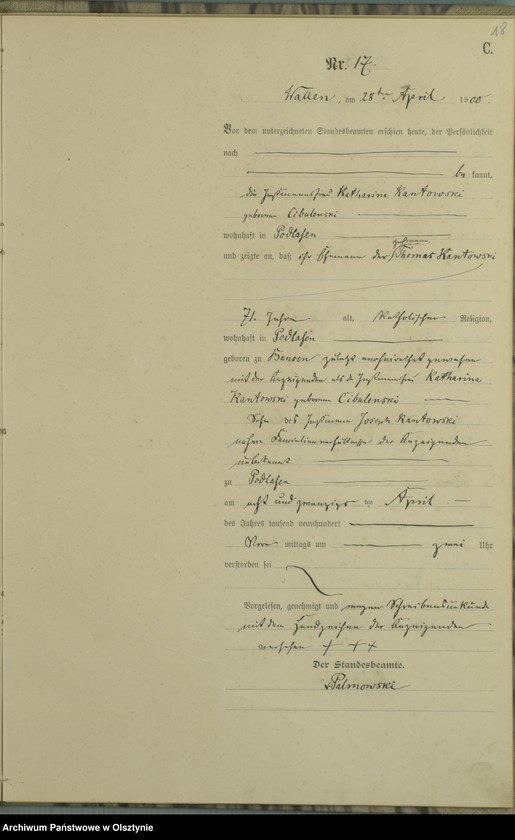 18
C.
Nr. 17.
Wallen, am 28ten April 1900.
Vor dem unterzeichneten Standesbeamten erschien heute, der Persönlichkeit
nach
be kannt,
die Instmannsfrau Katharina Kantowski
geborene Cibulenski
wohnhaft in Podlasen
Instmann
und zeigte an, daß ihr Ehemann der Thomas Kantowski
71 Jahre alt, katholischer Religion,
wohnhaft in Podlasen
geboren zu zuletzt verheirathet gewesen
mit der Anzeigenden als der Instmannsfrau Katharina
Kantowski geborene Cibulenski
Sohn des Instmann Joseph Kantowski
nähere Familienverhältnisse der Anzeigenden
unbekannt
zu Podlasen
am acht und zwanzigs ten April
des Jahres tausend neunhundert
Vor mittags um zwei Uhr
verstorben sei
Vorgelesen, genehmigt und wegen Schreibensunkunde
mit dem Handzeichen der Anzeigenden
versehen + + +
Der Standesbeamte.
vPalmowski
Archiwum Państwowe w Olsztynie